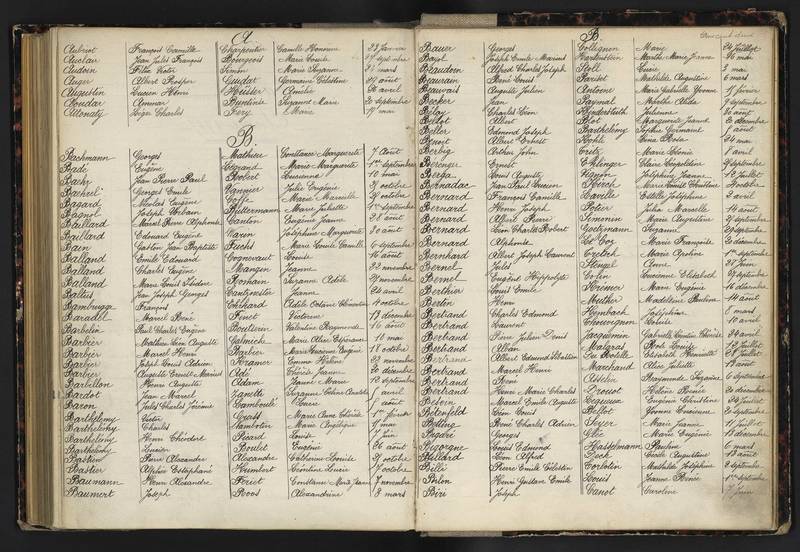 A
Aubriot François Camille Charpentier Camille Honorine 23 Janvier
Auclair Jean Jules François Bourgeois Marie Louise 17 septembre
Audoin Félix Victor Simon Marie Suzanne 31 mars
Auger Albert Prosper Guidat Germaine Célestine 27 août
Augustin Lucien Henri Heisler Amélie 26 avril
Aoudar Ammar Buntiné Suzanne Marie 20 septembre
Attonaty Roger Charles Fery Marie 19 mai
B
Bachmann Georges Mathieu Constance Marguerite 7 août
Badé Eugène Gérard Marie Marguerite 1er septembre
Baehr Jean Pierre Paul Brobert Lucienne 10 mai
Baehrel Georges Emile Vannier Julie Eugénie 31 octobre
Bagard Nicolas Eugène Goffe Marie Marcelle 31 octobre
Bagnol Joseph Urbain Buttermann Marie Juliette
Baillard Marcel Pierre Alphonse Canton Eugénie Jeanne 28 août
Baillard Edmond Eugène Marin Joséphine Marguerite 30 août
Bain Gaston Jean Baptiste Fuchs Marie Louise Camille 6 septembre
Balland Emile Edmond Cognevaut Louise 16 août
Balland Charles Eugène Mangin Jeanne 22 novembre
Balland Marie Louis Isidore Romain Suzanne Adèle 29 novembre
Ballius Jean Joseph Georges Cantzmeister Jeanne 26 avril
Bambuggi François Chenard Adèle Octavie Clémentine 4 octobre
Baradel Marcel René Finet Victorine 13 décembre
Barbelin Paul Charles Eugène Bouteren Valentine Raymonde 16 août
Barbier Mathieu Léon Auguste Calmich Marie Alice Espérance 10 mai
Barbier Marcel Henri Barbier Marie Vincienne Eugénie 18 octobre
Barbier Joseph Louis Adrien Kramer Jeanne Hélène 22 novembre
Barbier Auguste Ernest Marius Adé Thérèse Jeanne 20 décembre
Barbillon Henri Auguste Adam Jeanne Marie 12 septembre
Bardot Jean Marcel Zanetti Suzanne
Baron Jules Charles Jérémie Gamboulé Pierre 7 août
Barthélemy Victor Grass Marie Anne Thérèse 1er février
Barthélemy Charles Nambotin Marie Angélique 17 mai
Barthélemy Henri Théodore Picard Louise 7 juin
Barthélemy Lucien Boulet Eugénie 26 août
Bastien Pierre Alexandre Alexandre Catherine Louise 31 octobre
Bastier Alphée Estéphané Humbert Léontine Lucie 17 octobre
Baumann Henri Alexandre Foriet Constance Marie Jeanne 7 novembre
Baumert Joseph Roos Alexandrine 8 mars
B
Bauer Georges Collignon Marie 24 Juillet
Bazol Joseph Emile Marius Haubenstein Marthe Marie Jeanne 26 mai
Beaudoin Albert Charles Joseph Stoll Lucie mai
Beaurain René Louis Parisot Mathilde Augustine 6 mars
Beauvais Auguste Julien Antoine Marie Gabrielle Yvonne 17 février
Becker Jean Raymal Marthe Alida 7 septembre
Belay Charles Léon Biedersteith Julienne 30 août
Bellot Albert Plot Marguerite Jeanne 20 décembre
Beller Edmond Joseph Barthélemy Sophie Germaine 7 août
Benoit Albert Ernest Hohl Rosa 24 mai
Berbig Arthur John Critz Marie Léonie 8 avril
Bérenger Ernest Ehlinger Claire Léopoldine 9 septembre
Berga Louis Auguste Ugnon Joséphine Jeanne 12 Juillet
Bernadac Jean Paul Lucien Sperch Marie Louise 3 octobre
Bernard François Camille Carelle Estelle Joséphine 2 avril
Bernard Henri Joseph Peter Ida Marcelle 14 août
Bernard Albert Pierre Simonin Marie Augustine 27 septembre
Bernard Léon Charles Robert Goetzmann Suzanne 29 septembre
Bernard Alphonse Le Coz Marie Françoise 20 décembre
Bernhard Albert Joseph Laurent Cretsch Marie Apoline 1er septembre
Bernel Jules Stengel Anna 28 Juin
Bernel Eugène Hippolyte Colin Lucienne Elisabeth 29 septembre
Berthier Louis Emile Kremer Marie Eugénie 16 décembre
Bertin Henri Muther Madeleine Pauline 14 août
Bertrand Charles Edmond Heimbach Joséphine 8 mars
Bertrand Laurent Thouvignon Louise 10 avril
Bertrand Pierre Julien Denis Jacquemin Gabrielle Louise Thérèse 24 avril
Bertrand Alban Malgras Rose Louise 12 Juillet
Bertrand Albert Edmond Sébastien La Botelle Elisabeth Henriette 28 Juillet
Bertrand Marcel Henri Marchand Alice Juliette 17 août
Bertrand René Asselin Raymonde Suzanne 6 septembre
Bertrand Henri Marie Charles Drouot Hélène Renée 20 décembre
Marcel Emile Auguste Czeguen Eugénie Christine 24 Juillet
Betenfeld Léon Louis Bellot Yvonne Lucienne 20 septembre
Betting René Charles Adrien Sivier Marie Jeanne 11 Juillet
Georges Glé Marie Eugénie 13 décembre
Bezorgne Louis Edmond Hasselmann Pauline 6 mars
Léon Alfred Jeck Cécile Alice 13 août
Billé Pierre Emile Célestin Corbelin Mathilde Joséphine 2 septembre
Henri Gustave Emile Louis Jeanne Renée 1er septembre
Biri Joseph Canot Caroline 7 Juin